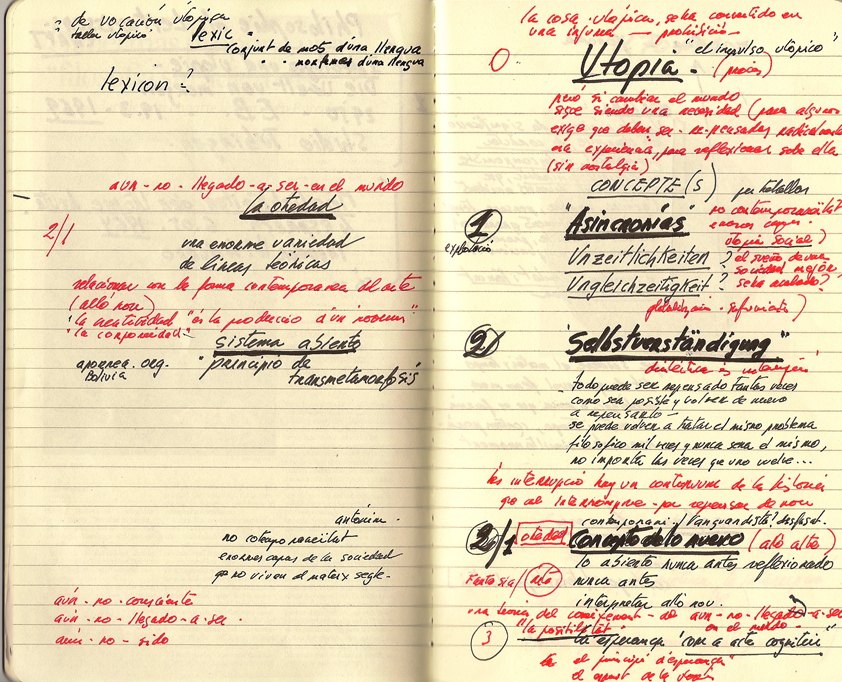 ? de vocación utópica
taller utópico
lexic
conjunt de mots d'una llengua
" " morfemas d'una llengua
lexicon?
aun-no-llegado-a-ser-en el mundo
la otedad
2/1
una enorme variedad
de lineas teóricas
relacionar con la forma contemporanea del arte
(allo nou)
"la creatividad" "és la producció d'un novum"
"la corporeidad"
sistema abierto
aporrea.org.
Bolivia
"principio de
transmetamorfosis"
antònim.
no cotemporaneitat
enormes capas de la sociedad
que no viven el mateix segle.
aún-no-consciente
aun-no-llegado-a-ser.
aún-no-sido
la cosa utópica, se ha convertido en
una infamia — prohibició —
"el impulso utópico"
Utopia. (procés)
però si cambiar el mundo
sigue siendo una necesidad (para algunos
exige que deben ser re-pensadas radicalmente
esa experiencia, para reflexionar sobre ella
(sin nostalgia)
CONCEPTE(S) per treballar
1 "Asincronías" no contemporaneïtat?
explotació
utopia social)
Unzeitlichkeiten ? el sueño de una
sociedad mejor,
Ungleichzeitigkeit ? será anulado?
sufrimiento)
2) "Selbstverständigung"
todo puede ser repensado tantas veces
como sea posible y volver de nuevo
a repensarlo —
se puede volver a tratar el mismo problema
filosofico mil veces y nunca sera el mismo,
no importa las veces que uno vuelve...
les interrupció hay un continuum de la historia
que cal interrompre - per repensar de nou
contemporani / l'avanguardista desfasat.
2/1 otedad Concepto de lo nuevo (alo alto)
lo abierto nunca antes reflexionado
Fantasia/arte nunca antes
interpretar allo nou.
una teoria del coneixement - del aun-no-llegado-a-ser
en el mundo -
"la positilitat"
3 la esperança "com a acte cognitiu"
"el principi d'esperança"